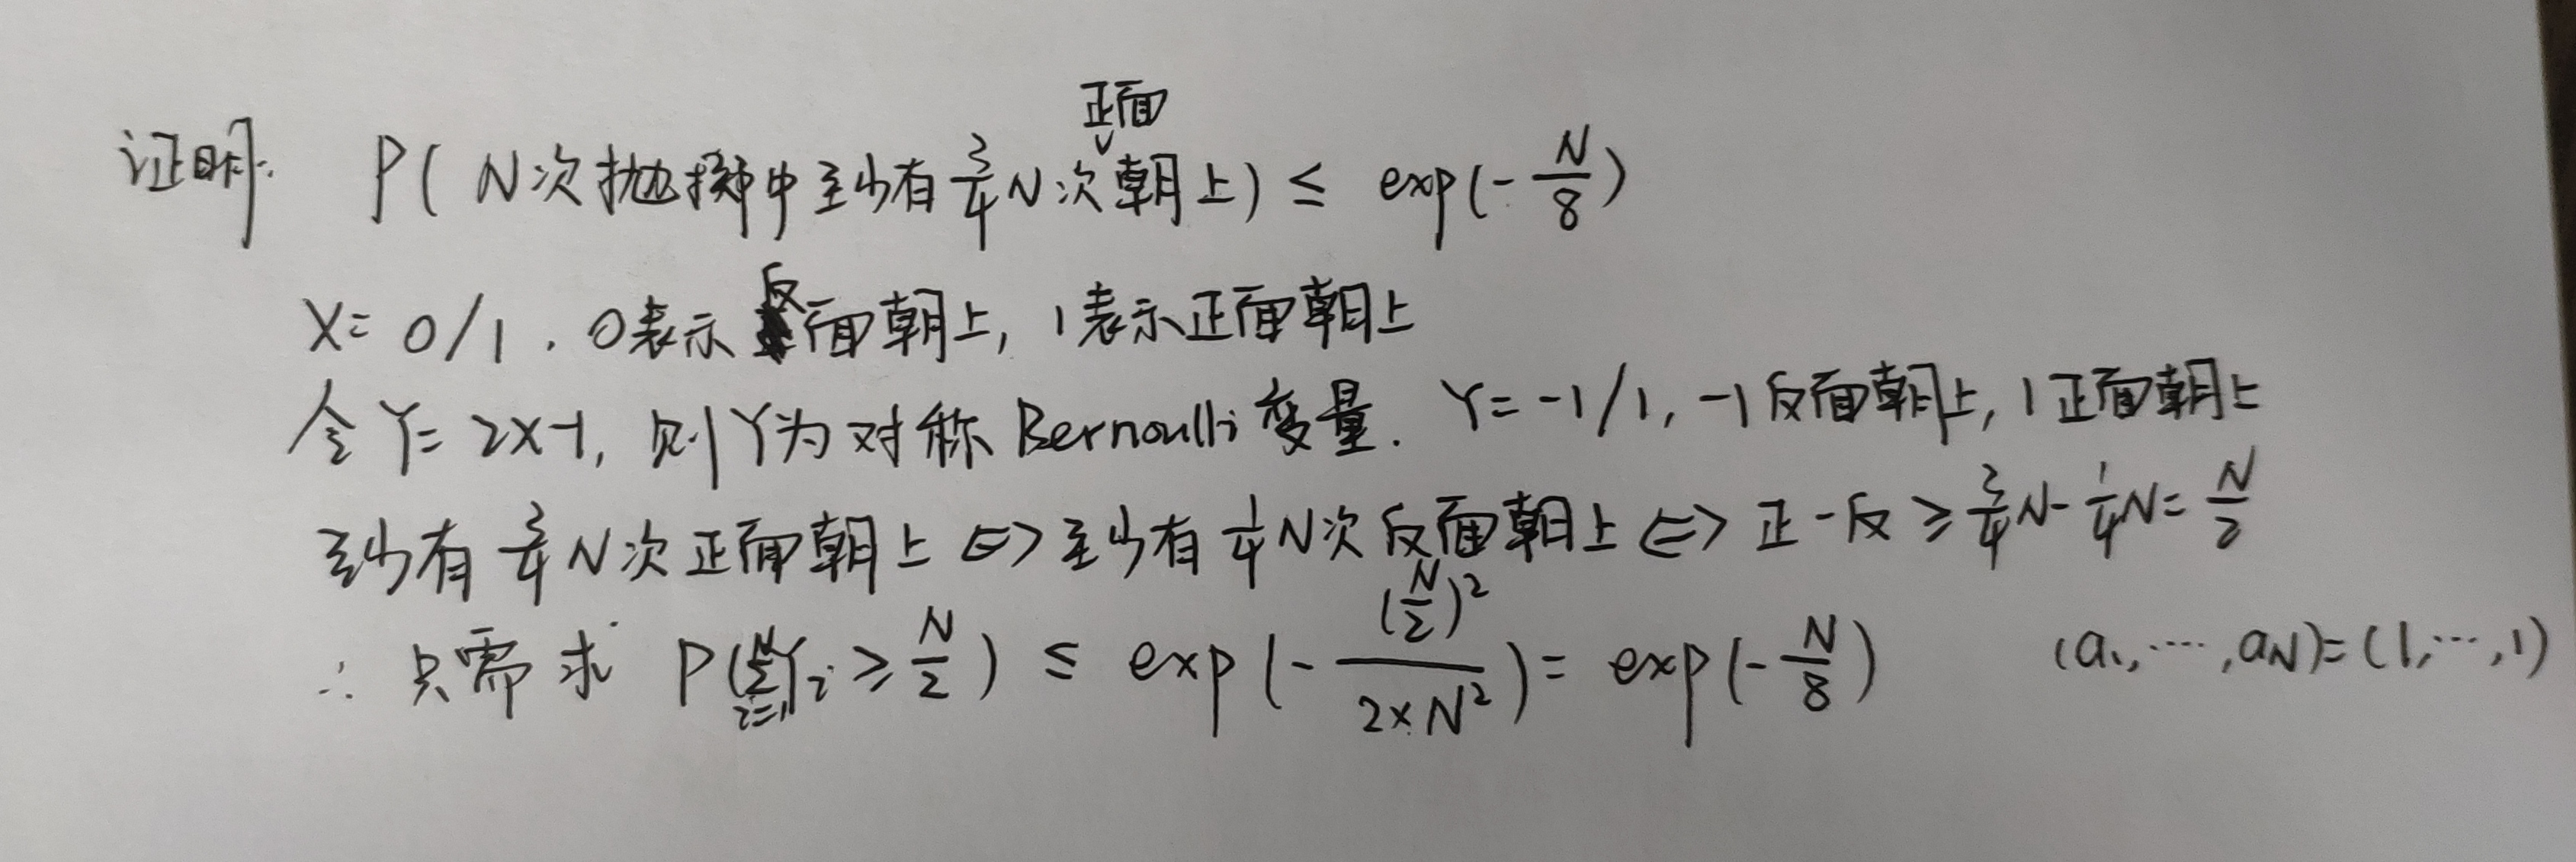 证明: P( N次抛掷中至少有 3/4 N次正面朝上) ≤ exp(-N/8)
X= 0/1 . 0表示反面朝上, 1表示正面朝上
令 Y= 2X-1, 则Y为对称 Bernoulli 变量. Y= -1/1, -1反面朝上, 1正面朝上
至少有 3/4 N次正面朝上 <=> 至少有 1/4 N次反面朝上 <=> 正-反 ≥ 3/4 N - 1/4 N = N/2
∴ 只需求 P(∑_{i=1}^{N} Y_i ≥ N/2) ≤ exp(- (N/2)^2 / (2×N^2)) = exp(-N/8) (a_1, ⋯, a_N)=(1,⋯,1)